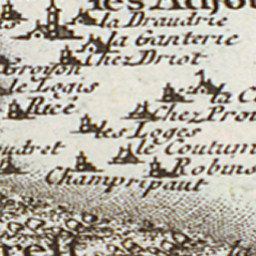 la Draudrie
la Ganterie
Chez Driot
le Logis
la C
Ricé
Chez Prou
les Loges
udret
le Coutum
Robins
Champripaut